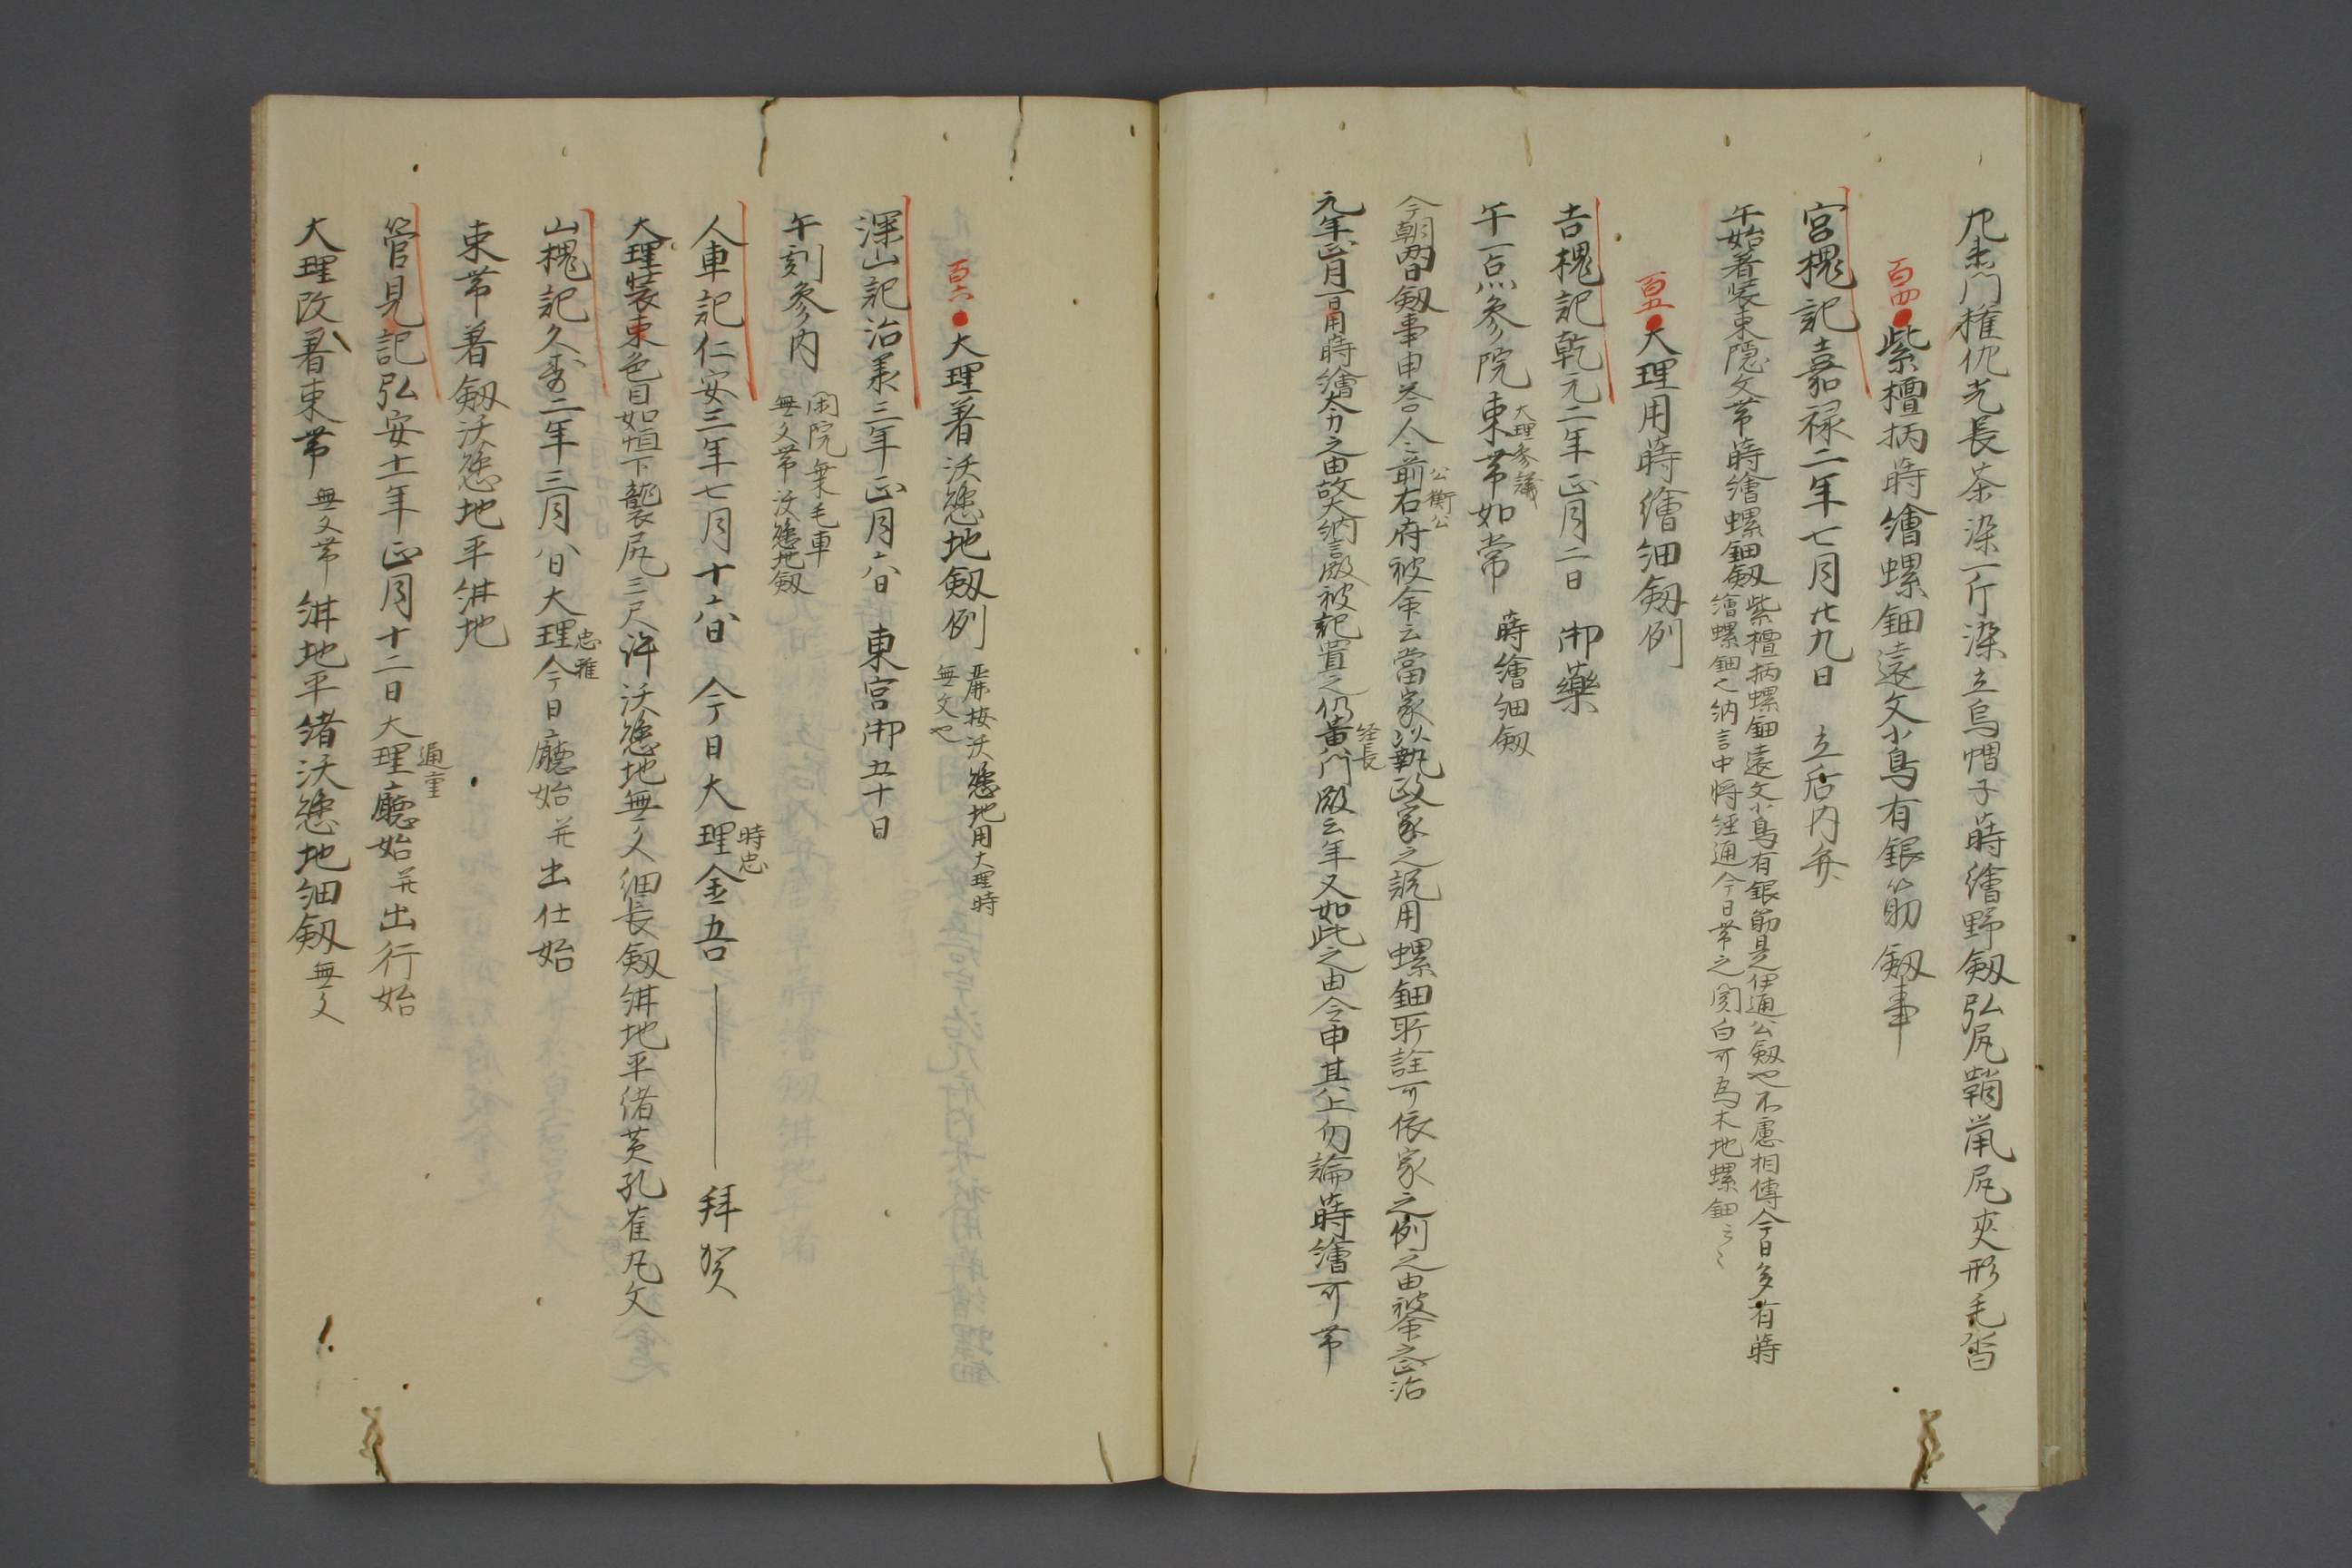 尻束門権佐光長茶染一斤染立烏帽子蒔繪野釼弘尻鞘䑕尻夾形毛沓
百四 紫檀柄蒔繪螺鈿遠文小鳥有銀筋釼事
宮槐記嘉禄二年七月廿九日 立后内弁
午始著装束隠文帯蒔繪螺鈿釼
紫檀柄螺鈿遠文小鳥有銀筋是伊通公釼也不慮相傳今日多有蒔
繪螺鈿之納言中将経通今日帯之関白可為木地螺鈿云々
百五 大理用蒔繪細釼例
吉槐記乾元二年正月二日 御藥
午一点参院大理参議束帯如常 蒔繪細釼
今朝両日釼事申合人々前右府公衡公被命云當家以執政家之説用螺鈿所詮可依家之例之由被命之正治
元年正月一日用蒔繪太刀之由故大納言殿被記置之仍黄門経長殿云年又如此之由令申其上勿論蒔繪可帯
百六 大理著沃懸地釼例
麗按沃懸地用大理時
無文也
深山記治承三年正月六日 東宮御五十日
午刻参内
閑院乗毛車
無文帯沃懸地釼
人車記仁安三年七月十六日 今日大理時忠金吾 拜賀
大理装束色目如恒下襲尻三尺許沃懸地無文細長釼紺地平緒黄孔雀丸文
山槐記久壽二年三月八日大理忠雅今日廳始并出仕始
束帯著釼沃懸地平紺地
管見記弘安十一年正月十二日大理通重廳始并出行始
大理改著束帯無文帯紺地平緒沃懸地細釼無文